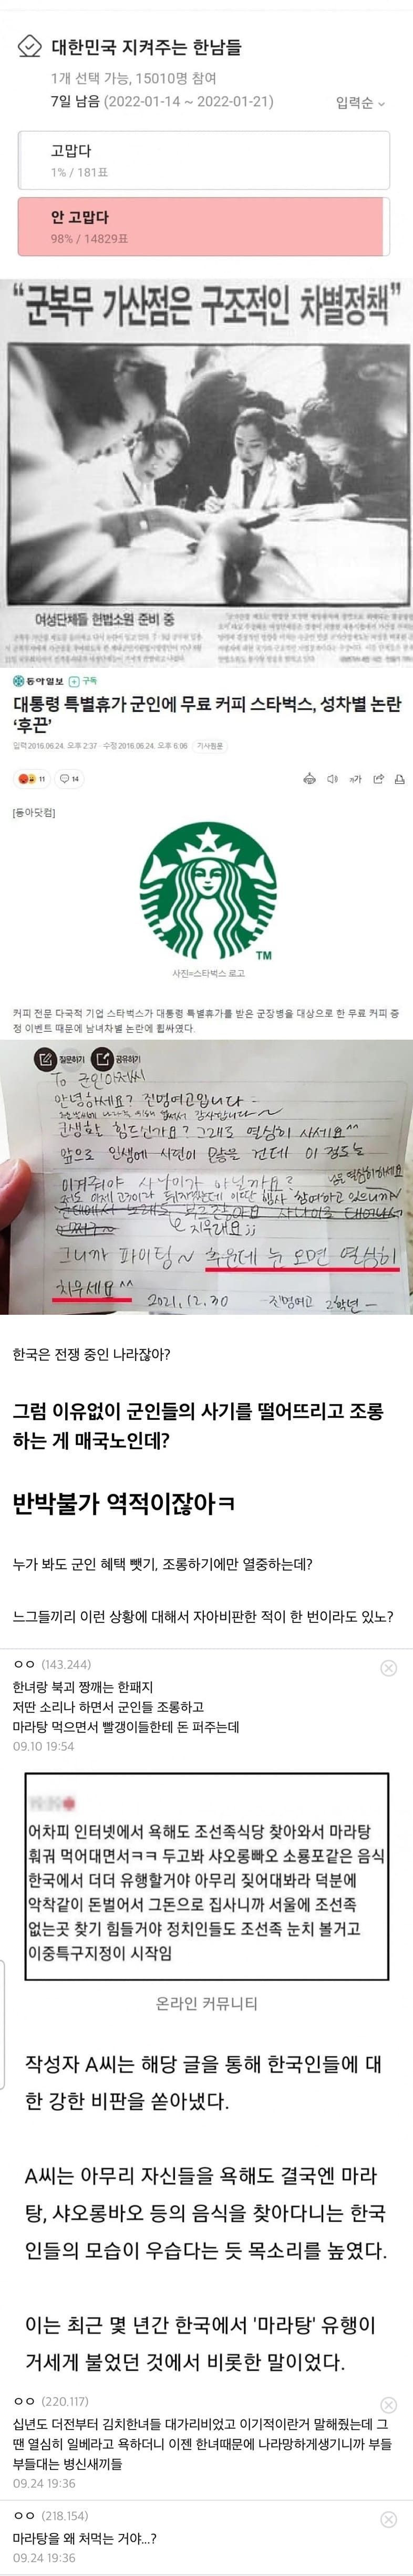 대한민국 지켜주는 한남들
1개 선택 가능, 15010명 참여
7일 남음 (2022-01-14 ~ 2022-01-21)
입력순
고맙다
1% / 181표
안 고맙다
98% / 14829표
“군복무 가산점은 구조적인 차별정책”
여성단체들 헌법소원 준비 중
동아일보 구독
대통령 특별휴가 군인에 무료 커피 스타벅스, 성차별 논란
‘후끈’
입력 2016.06.24. 오후 2:37 · 수정 2016.06.24. 오후 6:06 기사원문
11 14
가
[동아닷컴]
TM
사진=스타벅스 로고
커피 전문 다국적 기업 스타벅스가 대통령 특별휴가를 받은 군장병을 대상으로 한 무료 커피 증
정 이벤트 때문에 남녀차별 논란에 휩싸였다.
질문하기 공유하기
To 군인아저씨
안녕하세요? 진명여고입니다
군생활 힘드신가요? 그래도 열심히 사세요^^
앞으로 인생에 시련이 많을 건데 이 정도는
이겨줘야 사나이가 아닐까요?
저도 이제 고3이라 뒤지겠는데 이딴 행사 참여하고 있으니까
지우래요;;
그니까 파이팅~ 추운데 눈 오면 열심히
치우세요^^ 2021.12.30 -진명여고 2학년-
한국은 전쟁 중인 나라잖아?
그럼 이유없이 군인들의 사기를 떨어뜨리고 조롱
하는 게 매국노인데?
반박불가 역적이잖아ㅋ
누가 봐도 군인 혜택 뺏기, 조롱하기에만 열중하는데?
느그들끼리 이런 상황에 대해서 자아비판한 적이 한 번이라도 있노?
ㅇㅇ (143.244)
한녀랑 북괴 짱깨는 한패지
저딴 소리나 하면서 군인들 조롱하고
마라탕 먹으면서 빨갱이들한테 돈 퍼주는데
09.10 19:54
어차피 인터넷에서 욕해도 조선족식당 찾아와서 마라탕
훠궈 먹어대면서ㅋㅋ 두고봐 샤오롱빠오 소룡포같은 음식
한국에서 더더 유행할거야 아무리 짖어대봐라 덕분에
악착같이 돈벌어서 그돈으로 집사니까 서울에 조선족
없는곳 찾기 힘들거야 정치인들도 조선족 눈치 볼거고
이중특구지정이 시작임
온라인 커뮤니티
작성자 A씨는 해당 글을 통해 한국인들에 대
한 강한 비판을 쏟아냈다.
A씨는 아무리 자신들을 욕해도 결국엔 마라
탕, 샤오롱바오 등의 음식을 찾아다니는 한국
인들의 모습이 우습다는 듯 목소리를 높였다.
이는 최근 몇 년간 한국에서 '마라탕' 유행이
거세게 불었던 것에서 비롯한 말이었다.
ㅇㅇ (220.117)
십년도 더전부터 김치한녀들 대가리비었고 이기적이란거 말해줬는데 그
땐 열심히 일베라고 욕하더니 이젠 한녀때문에 나라망하게생기니까 부들
부들대는 병신새끼들
09.24 19:36
ㅇㅇ (218.154)
마라탕을 왜 처먹는 거야...?
09.24 19:36